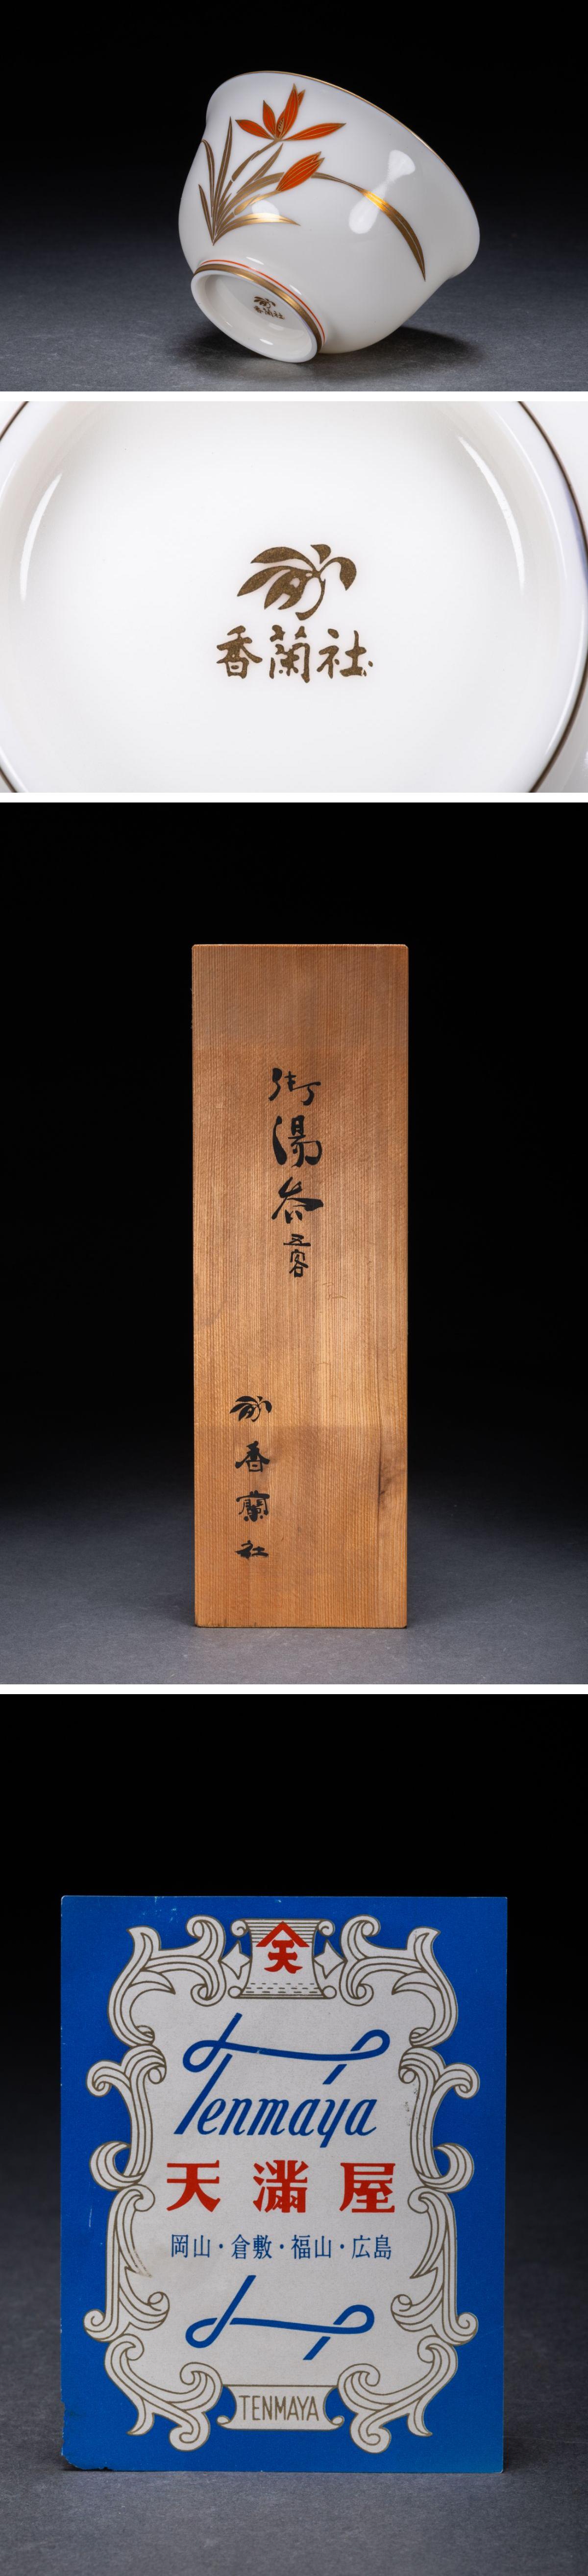 香蘭社
香蘭社
御湯呑
五客
香蘭社
天
Tenmaya
天満屋
岡山・倉敷・福山・広島
TENMAYA